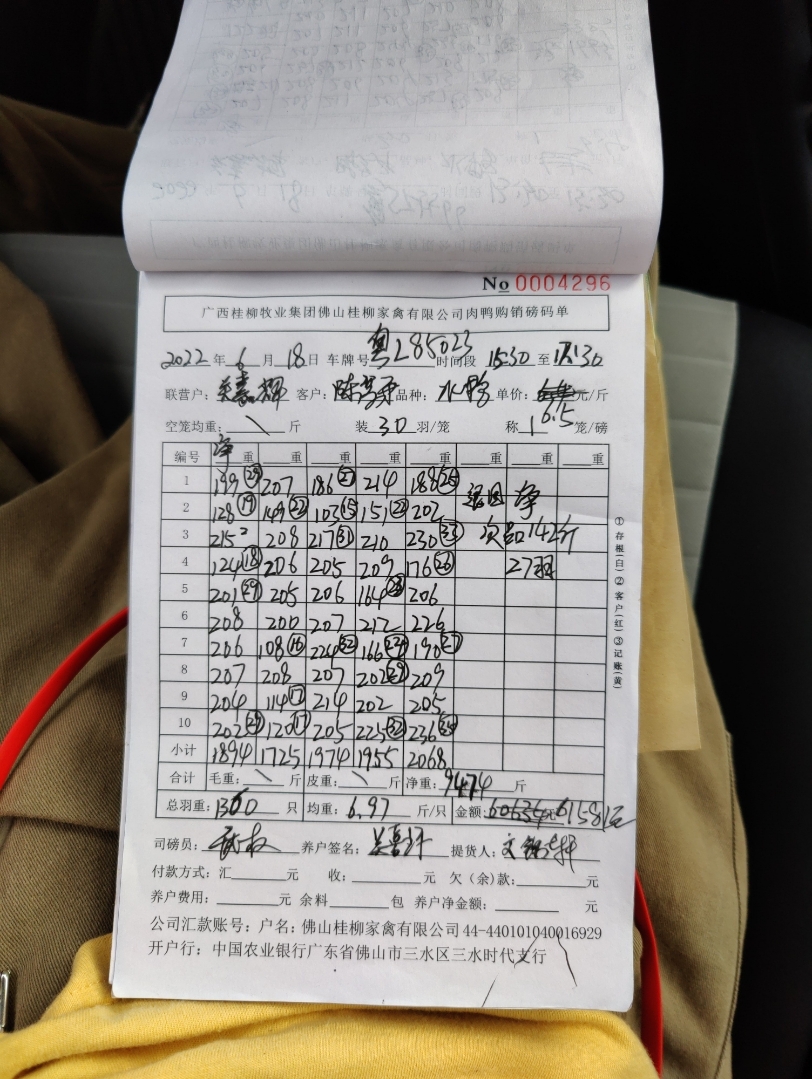 No 0004296
广西桂柳牧业集团佛山桂柳家禽有限公司肉鸭购销磅码单
2022年6月18日 车牌号粤L85023时间段 15:30 至 17:30
联营户: 客户: 品种:水鸭 单价: 元/斤
空笼均重:\斤 装 30 羽/笼 称 1 笼/磅
6.5
净
编号 重 重 重 重 重 重 重 重
1 199(29) 207 186(27) 214 188(28)
2 128(19) 149(22) 103(15) 151(22) 202 净
3 215 208 217(31) 210 230(33) 次品142斤
4 124(18) 206 205 209 176(26) 27羽
5 201(29) 205 206 164(23) 206
6 208 200 207 212 226
7 206 108(16) 224(32) 166(24) 190(27)
8 207 208 207 202(29) 209
9 204 114(17) 214 202 205
10 202(29) 120(17) 205 225(32) 236(34)
小计 1894 1725 1974 1955 2068
合计 毛重:\斤 皮重:\斤 净重:9474 斤
总羽重:1360 只 均重:6.97 斤/只 金额:60634元 61581元
司磅员: 养户签名: 提货人:
付款方式:汇 元 收: 元 欠(余)款: 元
养户费用: 元 余料 包 养户净金额: 元
公司汇款账号:户名:佛山桂柳家禽有限公司44-440101040016929
开户行:中国农业银行广东省佛山市三水区三水时代支行
①存根(白)②客户(红)③记账(黄)